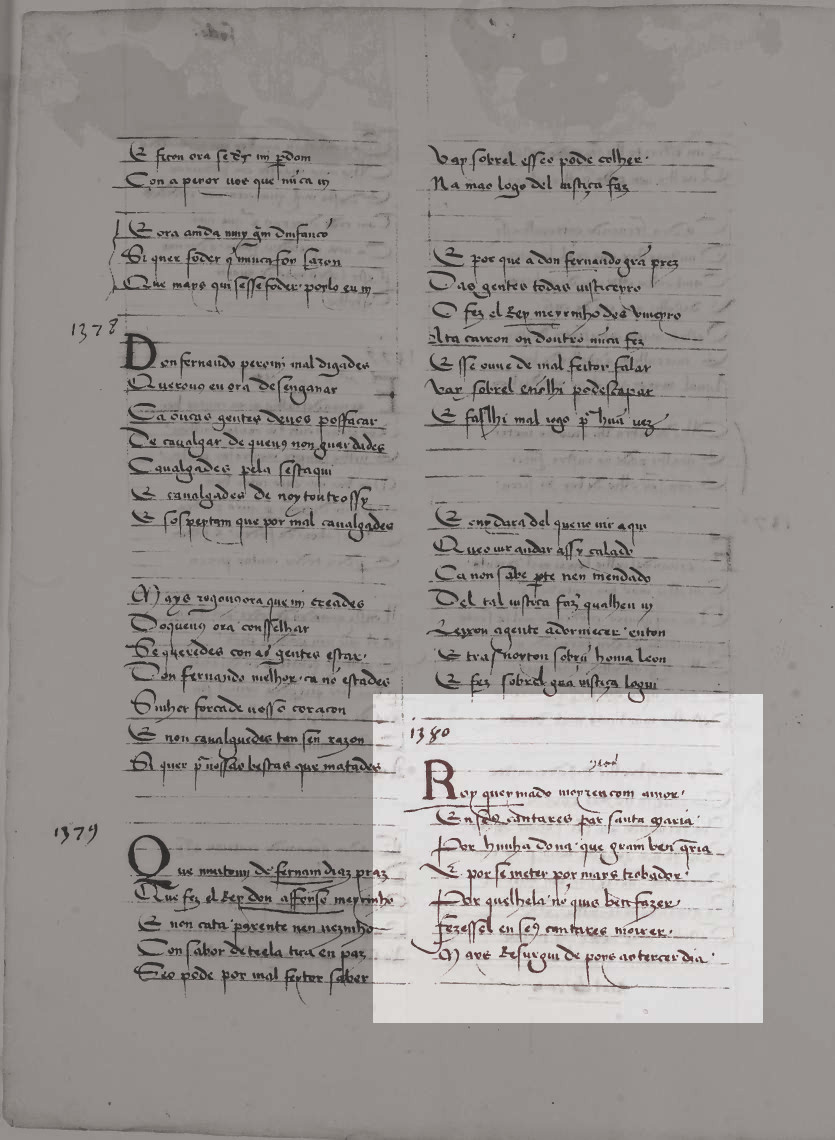 E ficou ora se d's mi pdom
Con a peior uos que nūca ui
E ora ainda muy gm
Si quer foder q' nunca foy sazon
Que mays qui sesse foder poylo eu ui
1378
Don fernando pero mi mal digades
Querouꝯ eu ora desenganar
Ca ouças gentes deuos possacar
De caualgar de queuꝯ non guardades
Caualgades pela sestaqui
E caualgades de noytoutrossy
E sospeytam que por mal caualgades
Mays rogouꝯora que mi creades
Doqueuꝯ ora conselhar
Se queredes con as gentes estar
Don fernando melhor ca nō estades
Sinher forçade uosso coraçon
E non caualguedes tan sen razon
Si quer p uossas bestas que matades
1379
Que muytomi de fernam diaz praz
Que fez el Rey don affonso meyrinho
E non cata parente nen uezinho
Con sabor de teela tira en paz
Seo pode por mal feytor saber
Vay sobrel esseo pode colher
Na mao logo del iustiça faz
E por que a don fernando grā prez
Das gentes todas iusticeyro
O fez el Rey meyrinho des uiueyro
Ata carron on doutro nūca fez
E sse ouue de mal feitor falar
Vay sobrel enōlhi podescapar
E fazlhi mal iogo p huā uez
E cuydara del queno uir aqui
Queo uir andar assy calado
Ca non sabe pte nen mendado
De tal iustiça faz qualheu ui
Leixou agente adormecer enton
E trasnoyton sobrū home leon
E fez sobrel grā iustiça logui
1380
Roy queymado morreu com amor
En seꝯ cantares par santa maria
Por hunha dona que gram ben qria
E por se meter por mays trobador
Por quelhela nō quis ben fazer
Fezessel en seꝯ cantares morrer
Mays Resurgiu de poys ao tercer dia